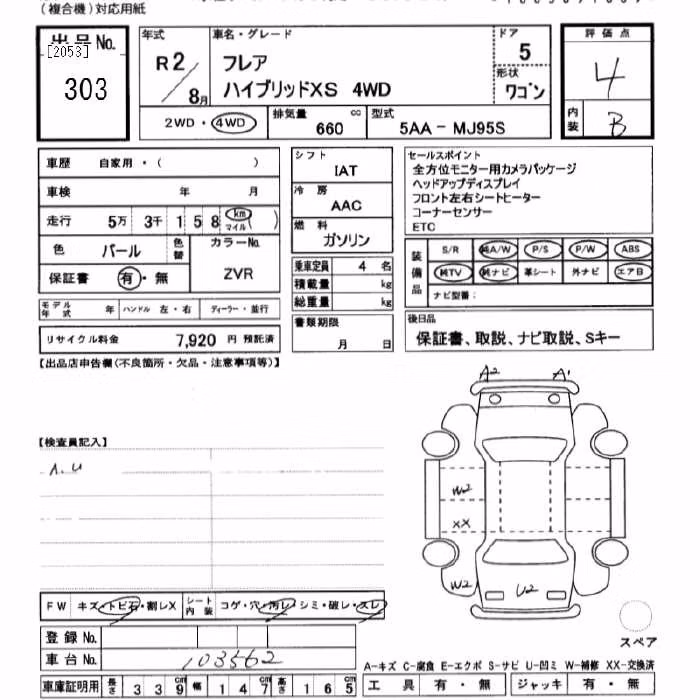 (複合機)対応用紙
出品No.
[2053]
303
年式
R2/8月
車名・グレード
フレア
ハイブリッドXS 4WD
ドア
5
形状
ワゴン
評価点
4
内装
B
2WD・4WD
排気量
660 cc
型式
5AA-MJ95S
車歴 自家用・( )
車検 年 月
走行 5万 3千 1 5 8 km マイル ( )
色 パール 色替
カラーNo.
ZVR
保証書 有・無
モデル年式 年 ハンドル 左・右 ディーラー・並行
リサイクル料金 7,920 円 預託済
シフト
IAT
冷房
AAC
燃料
ガソリン
乗車定員 4 名
積載量 kg
総重量 kg
書類期限
月 日
セールスポイント
全方位モニター用カメラパッケージ
ヘッドアップディスプレイ
フロント左右シートヒーター
コーナーセンサー
ETC
装備品
S/R 純A/W P/S P/W ABS
純TV 純ナビ 革シート 外ナビ エアB
ナビ型番:
後日品
保証書、取説、ナビ取説、Sキー
【出品店申告欄(不良箇所・欠品・注意事項等)】
【検査員記入】
A.U
A2 A1
W2
XX
W2 U2
スペア
FW キズ・トビ石・割レX シート内装 コゲ・穴・汚レ・シミ・破レ・スレ
登録No.
車台No. 103562
車庫証明用 長さ 3 3 9 cm 幅 1 4 7 cm 高さ 1 6 5 cm
A-キズ C-腐食 E-エクボ S-サビ U-凹ミ W-補修 XX-交換済
工具 有・無 ジャッキ 有・無